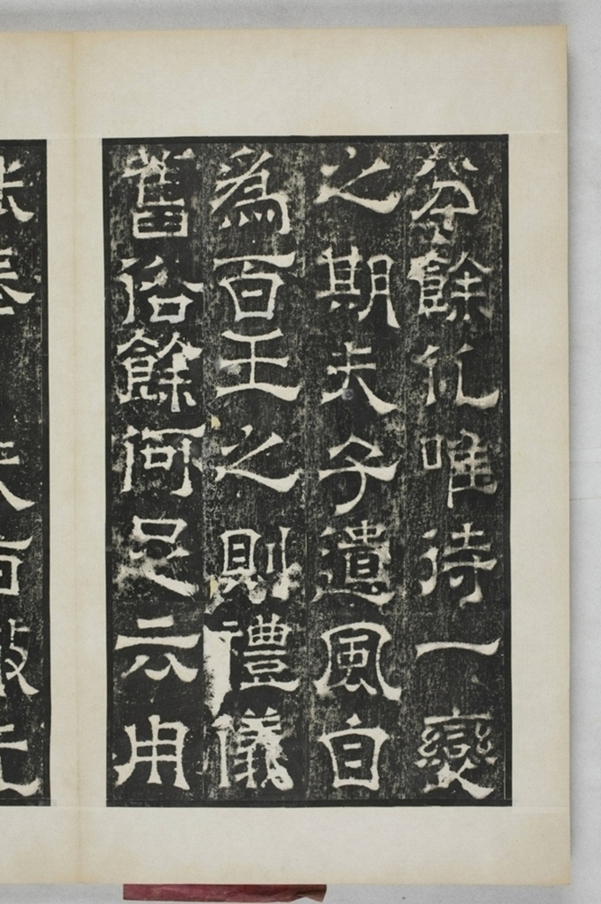 餘化唯待一變
之期夫子遺風自
為百王之則禮儀
舊俗餘何足云用